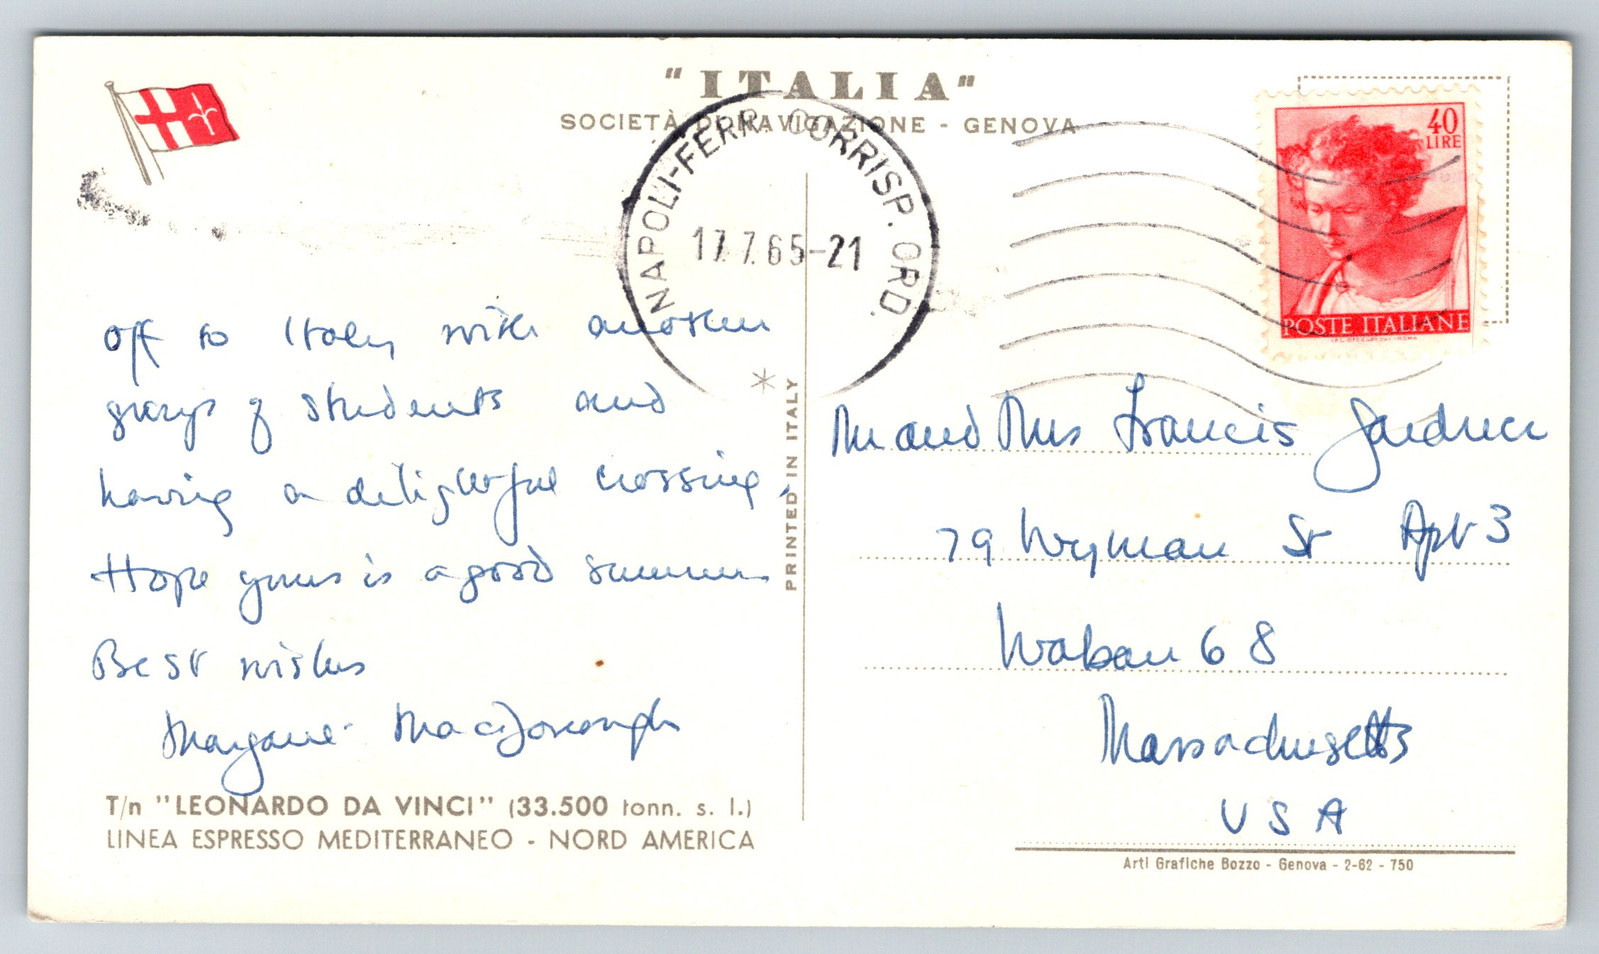 "ITALIA"
SOCIETÀ DI NAVIGAZIONE - GENOVA
NAPOLI-FERR. CORRISP. ORD.
17.7.65-21
40
LIRE
POSTE ITALIANE
off to Italy with another
group of students and
having a delightful crossing.
Hope yours is a good summer
Best wishes
MacDonough
PRINTED IN ITALY
Mr and Mrs Francis Gardner
79 Wyman St Apt 3
Waban 68
Massachusetts
USA
T/n "LEONARDO DA VINCI" (33.500 tonn. s. l.)
LINEA ESPRESSO MEDITERRANEO - NORD AMERICA
Arti Grafiche Bozzo - Genova - 2-62 - 750